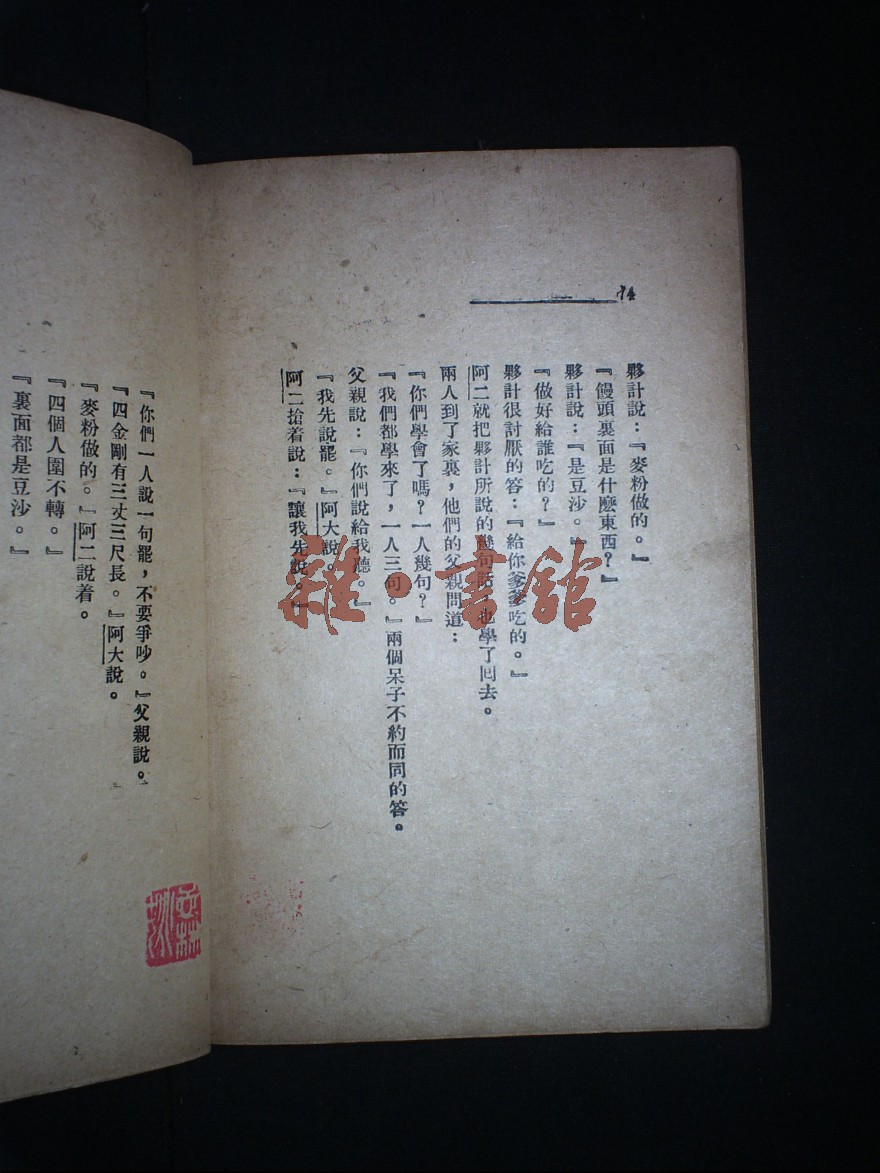 94
夥計說：『麥粉做的。』
『饅頭裏面是什麼東西？』
夥計說：『是豆沙。』
『做好給誰吃的？』
夥計很討厭的答：『給你爹爹吃的。』
阿二就把夥計所說的幾句話，也學了回去。
兩人到了家裏，他們的父親問道：
『你們學會了嗎？一人幾句？』
『我們都學來了，一人三句。』兩個呆子不約而同的答。
父親說：『你們說給我聽。』
『我先說罷。』阿大說。
阿二搶着說：『讓我先說。』
『你們一人說一句罷，不要爭吵。』父親說。
『四金剛有三丈三尺長。』阿大說。
『麥粉做的。』阿二說着。
『四個人圍不轉。』
『裏面都是豆沙。』
雜·書館